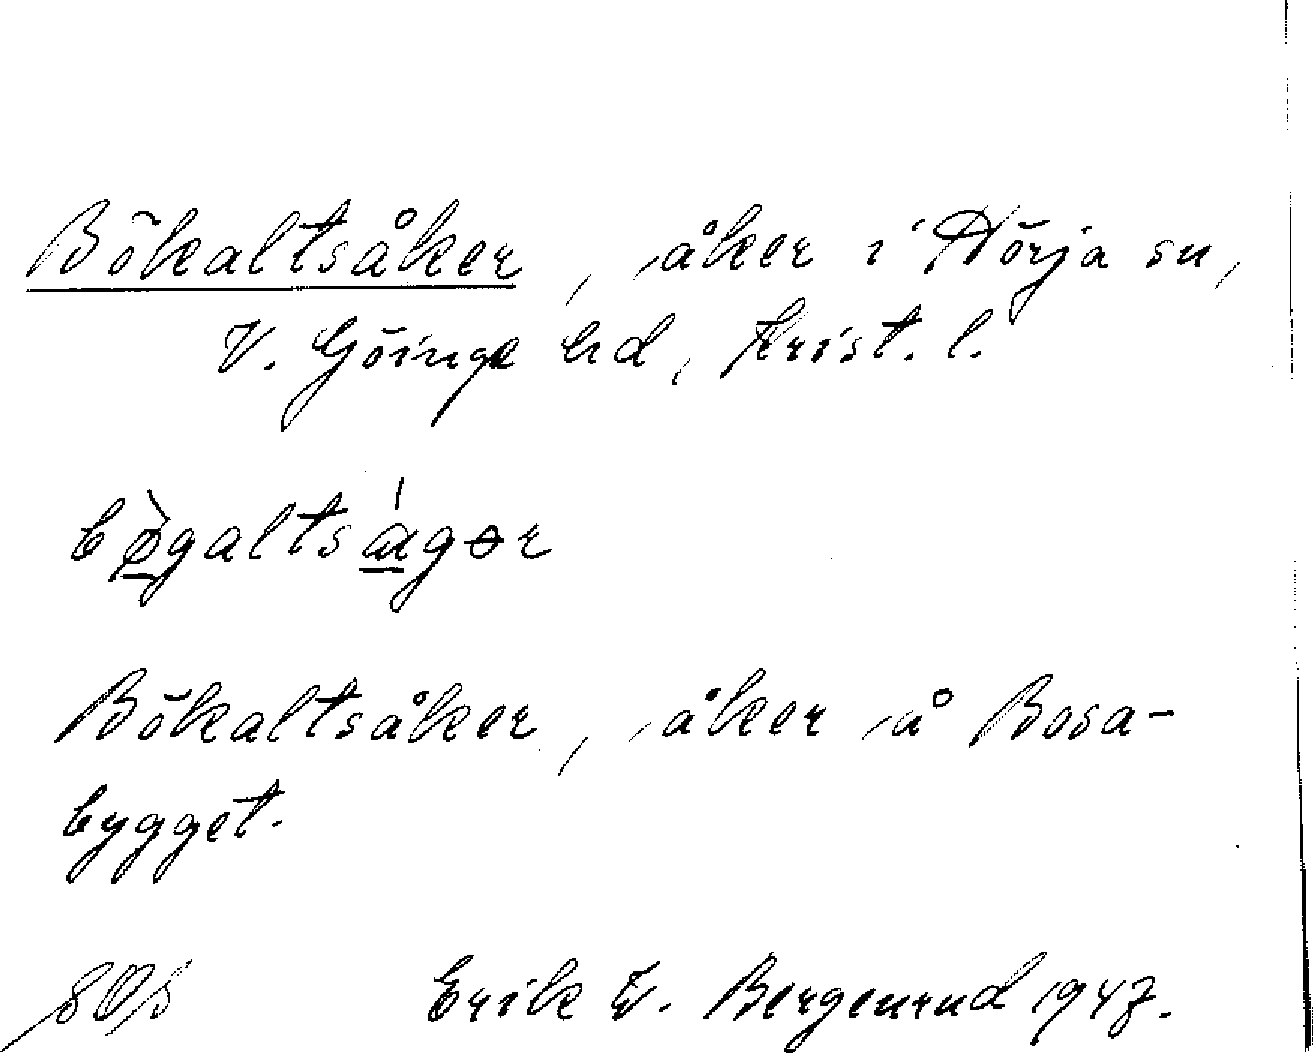 Bökaltsåker, åker i Nörja sn,
V. Göinge hd, Krist. l.
bø̀galtságər
Bökaltsåker, åker å Bosa-
bygget.
Erik W. Bergenrud 1947.